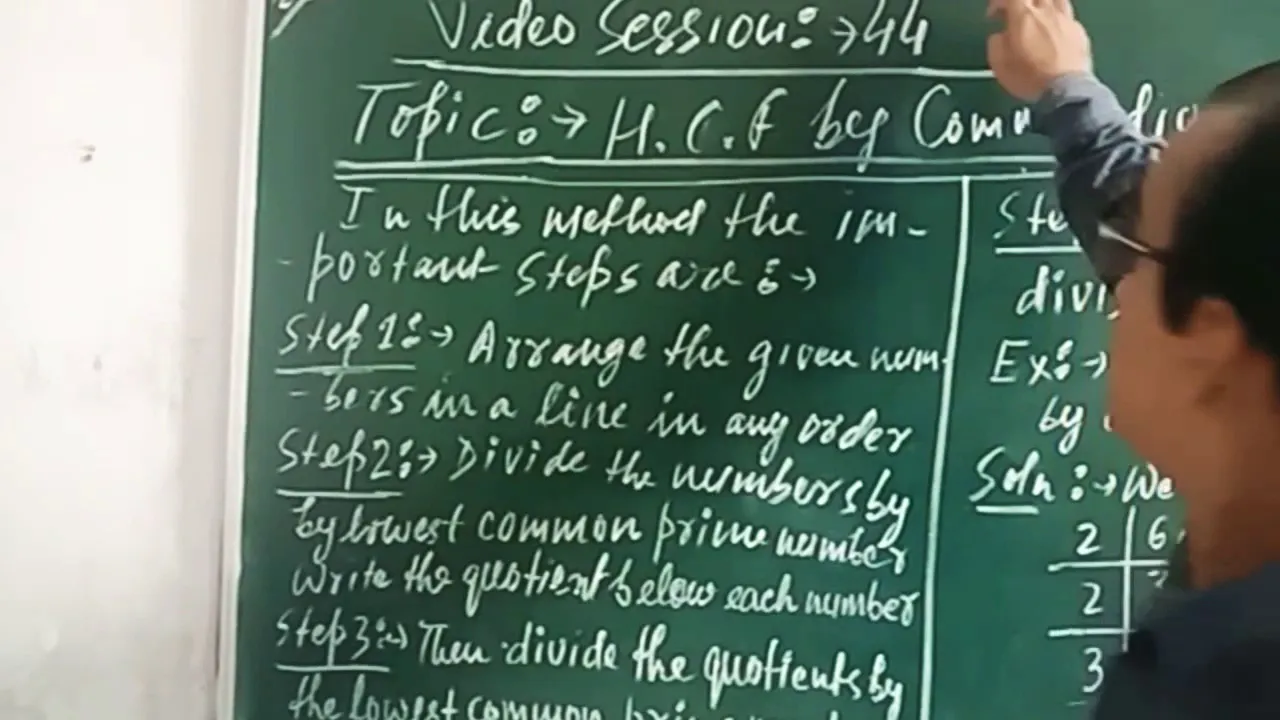 Video Session:→44
Topic:→ H.C.F by Comm
In this method the im-
-portant steps are:→
Step 1:→ Arrange the given num-
-bers in a line in any order
Step2:→ Divide the numbers by
by lowest common prime number
write the quotient below each number
Step3:→ Then divide the quotients by
the lowest common
Ste
divi
Ex:→
by
Soln:→ We
2 6
2
3